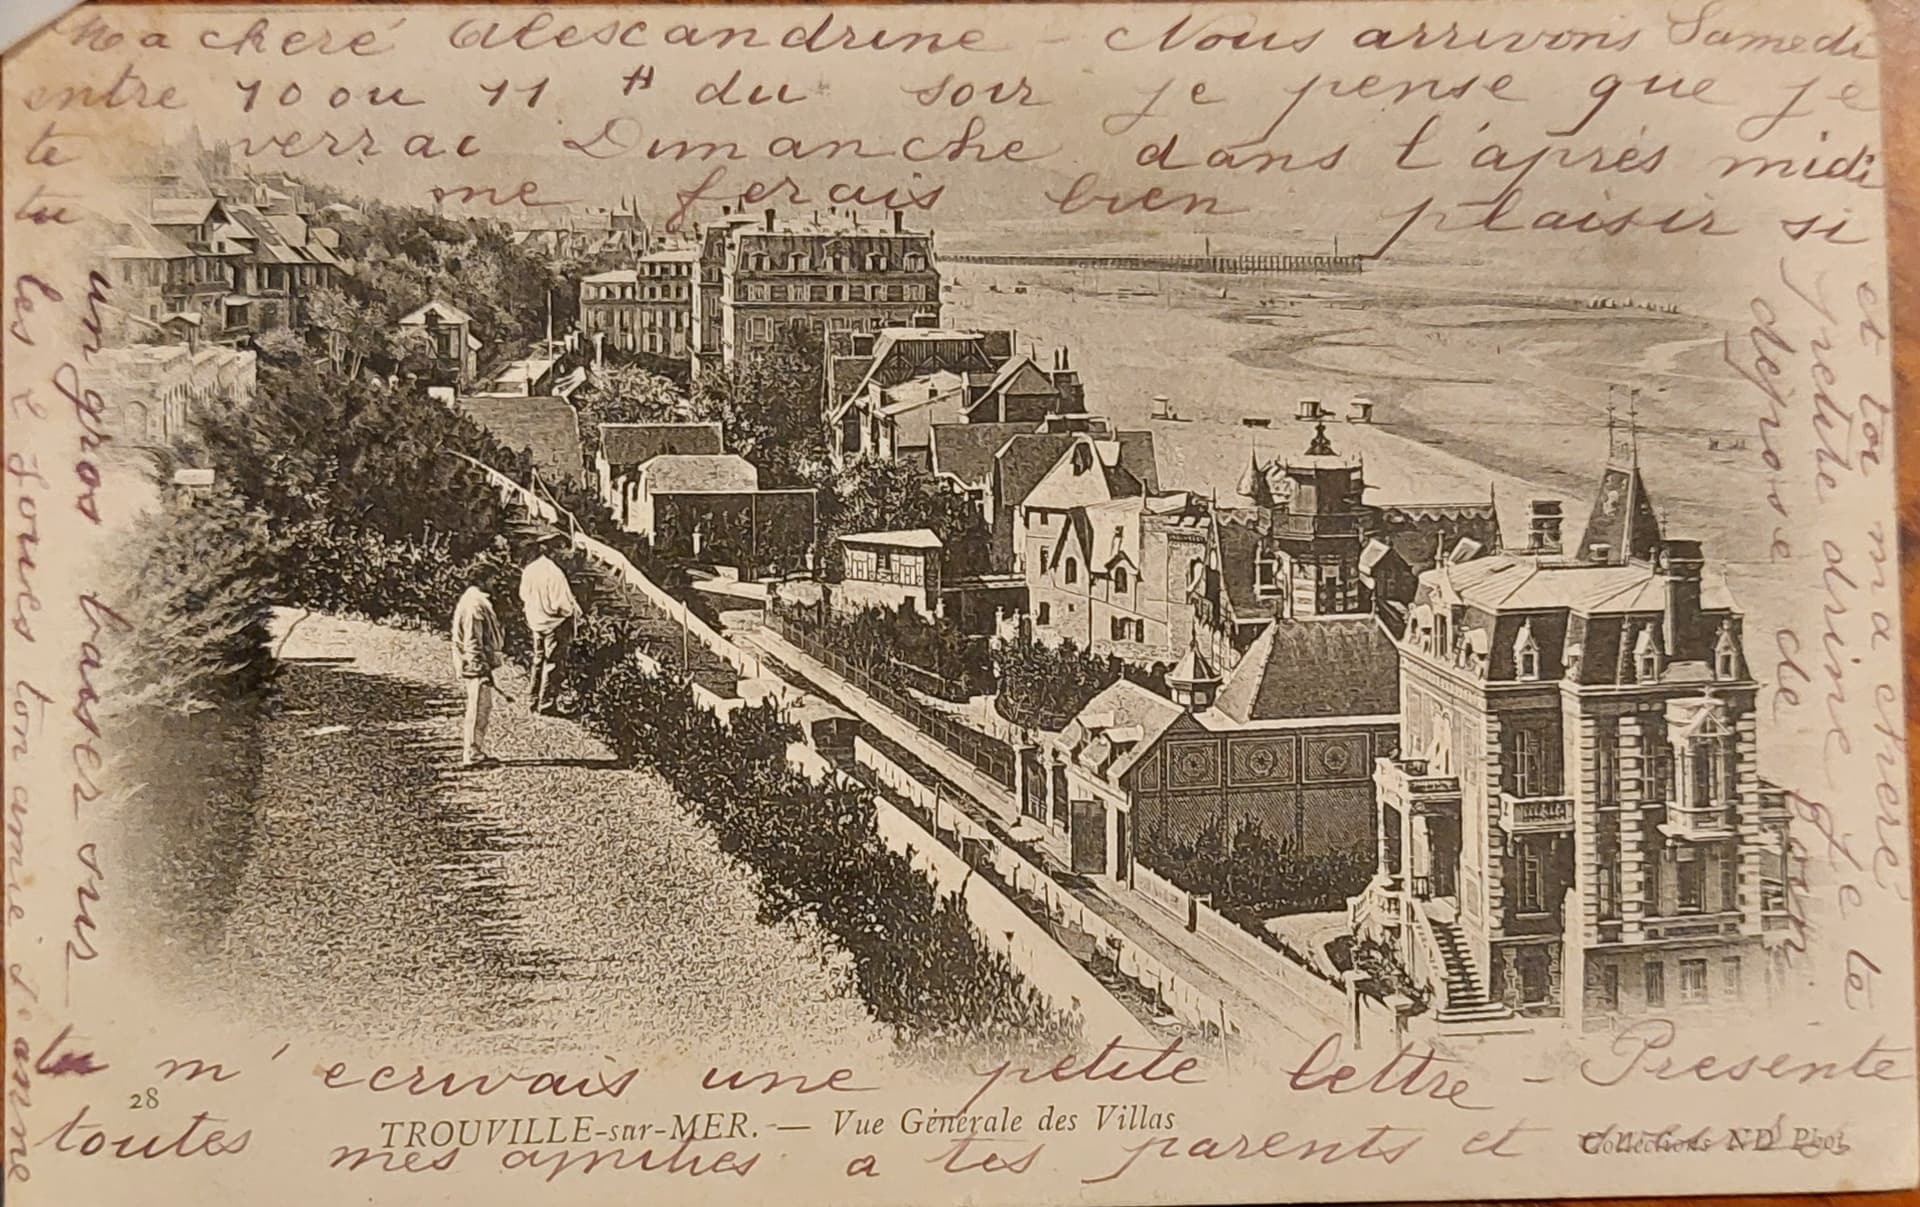 Ma cheré Alescandrine - Nous arrivons Samedi
entre 10 ou 11 H du soir je pense que je
te verrai Dimanche dans l'aprés midi
tu me ferais bien plaisir si
tu m'ecrivais une petite lettre - Presente
toutes mes amitiés a tes parents et
et toi ma cheré
petite drine je te
depose de loin
un gros baiser sur
les 2 joues ton amie Jeanne
28
TROUVILLE-sur-MER. — Vue Générale des Villas
Collections ND Phot